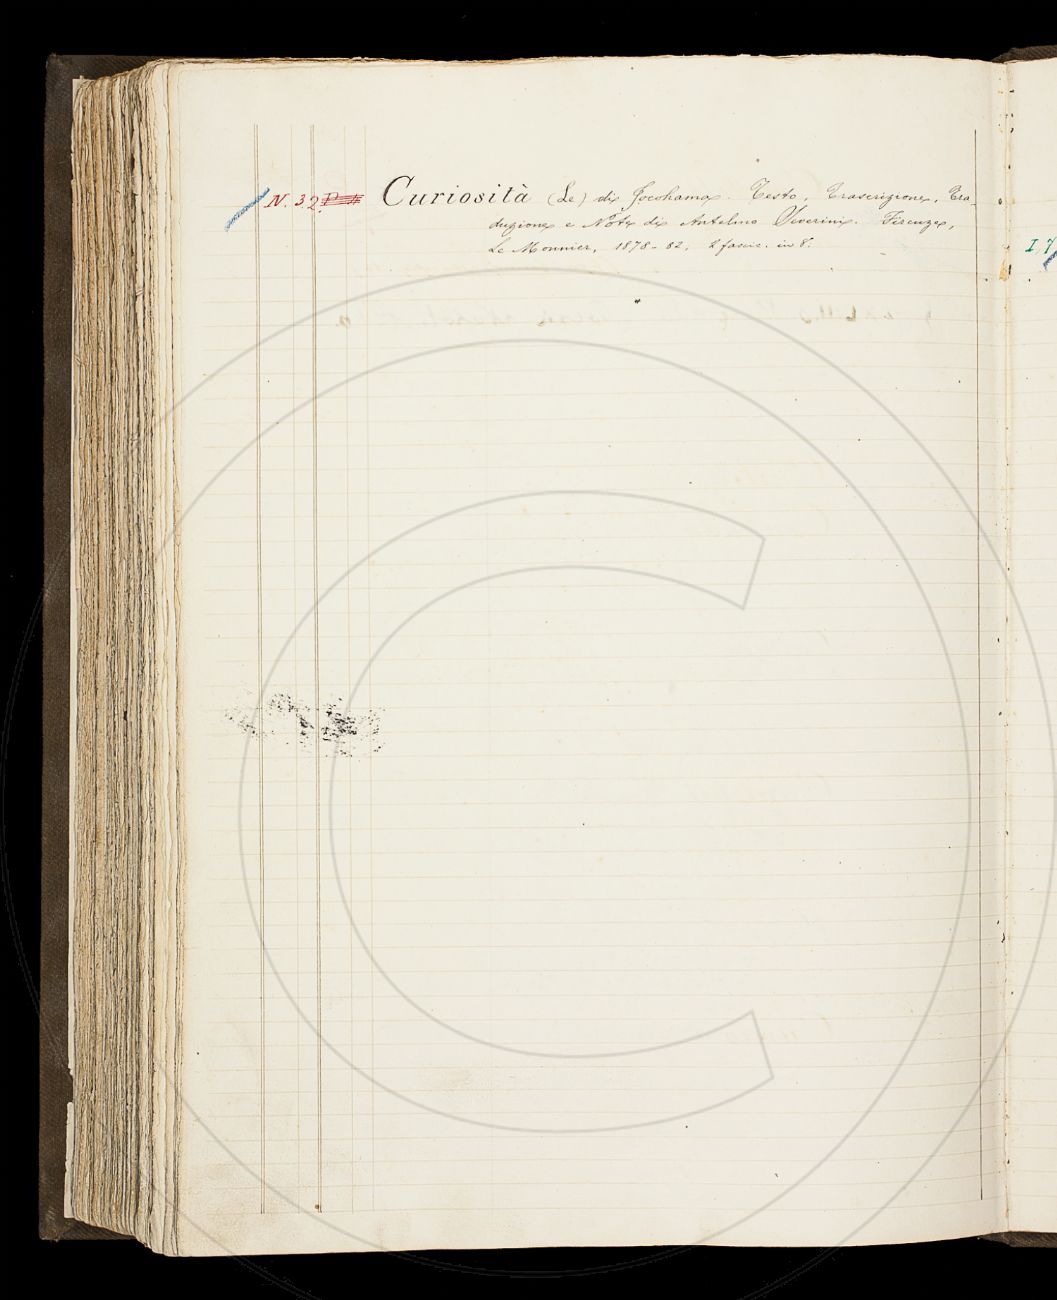 N. 32. Curiosità (Le) di Jocohama. Testo, Trascrizione, Tra-
duzione e Note di Antelmo Severini. Firenze,
Le Monnier, 1878-82; 2 fascic. in 8.
I, 7